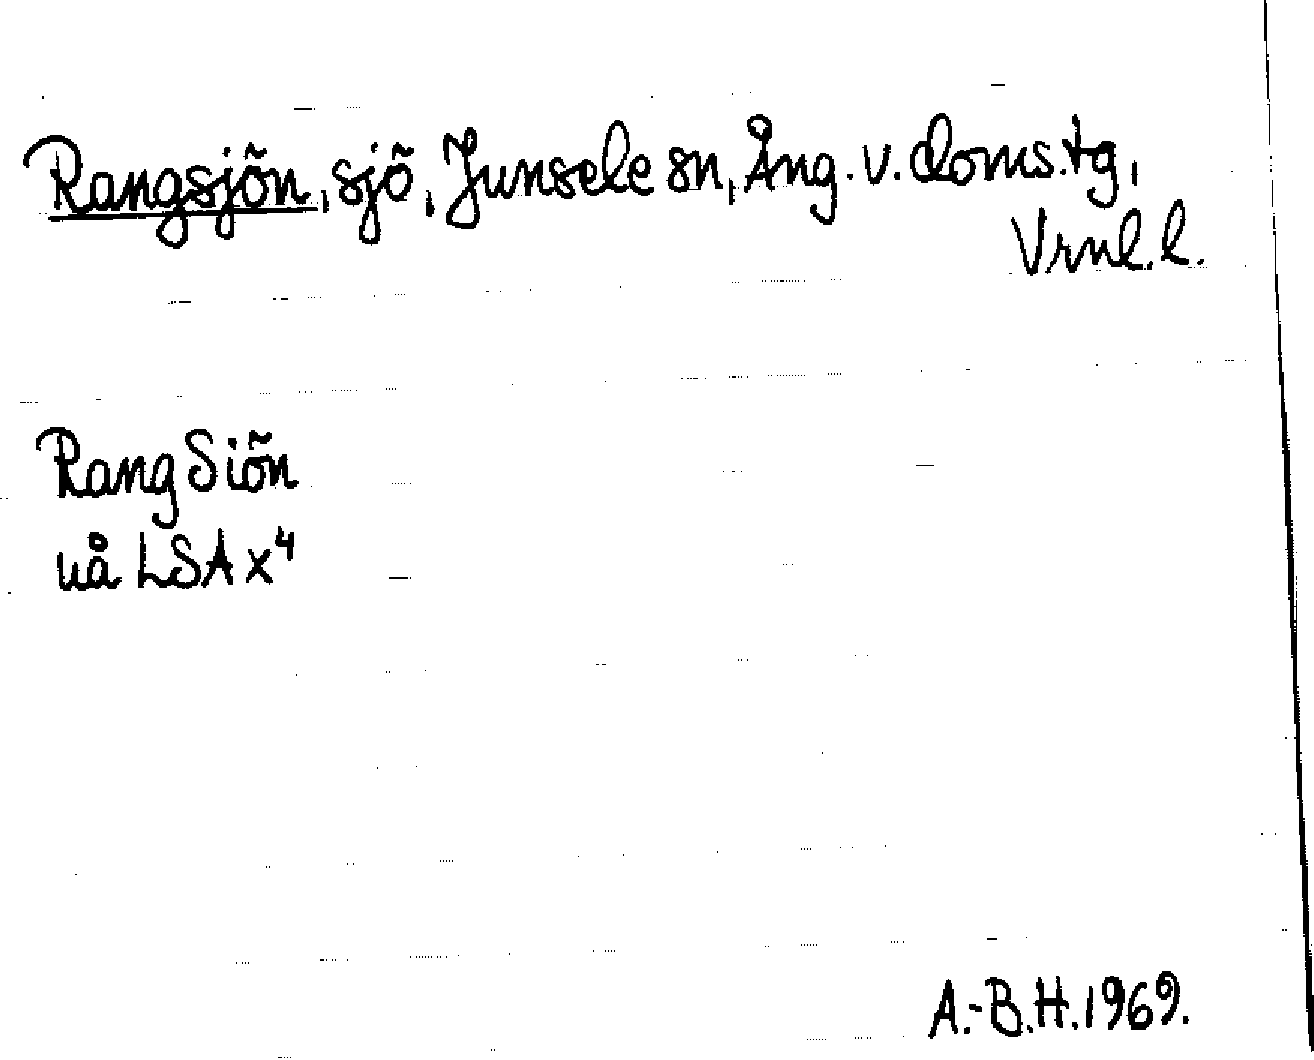 Rangsjön, sjö, Junsele sn, Ång. v. doms.tg,
Vrnl. l.
Rang Siön
uå LSA x⁴
A.-B.H. 1969.